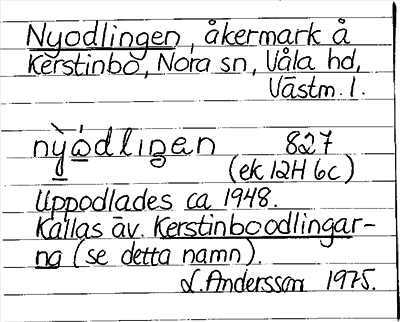 Nyodlingen, åkermark å
Kerstinbo, Nora sn, Våla hd,
Västm. l.
nỳódlingan 827
(ek 12H 6c)
Uppodlades ca 1948.
Kallas äv. Kerstinboodlingar-
na (se detta namn).
L. Andersson 1975.